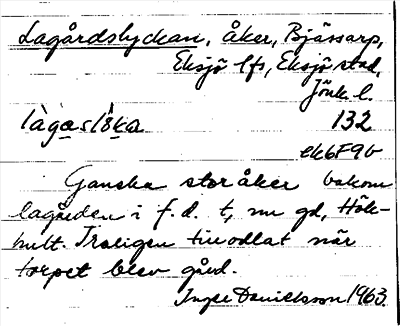 Lagårdslyckan, åker, Bjässarp,
Eksjö lfs, Eksjö stad,
Jönk. l.
132
ek6F9b
Ganska stor åker bakom
lagården i f.d. t, nu gd, Hök-
hult. Troligen tillodlat när
torpet blev gård.
Inger Danielsson 1963.